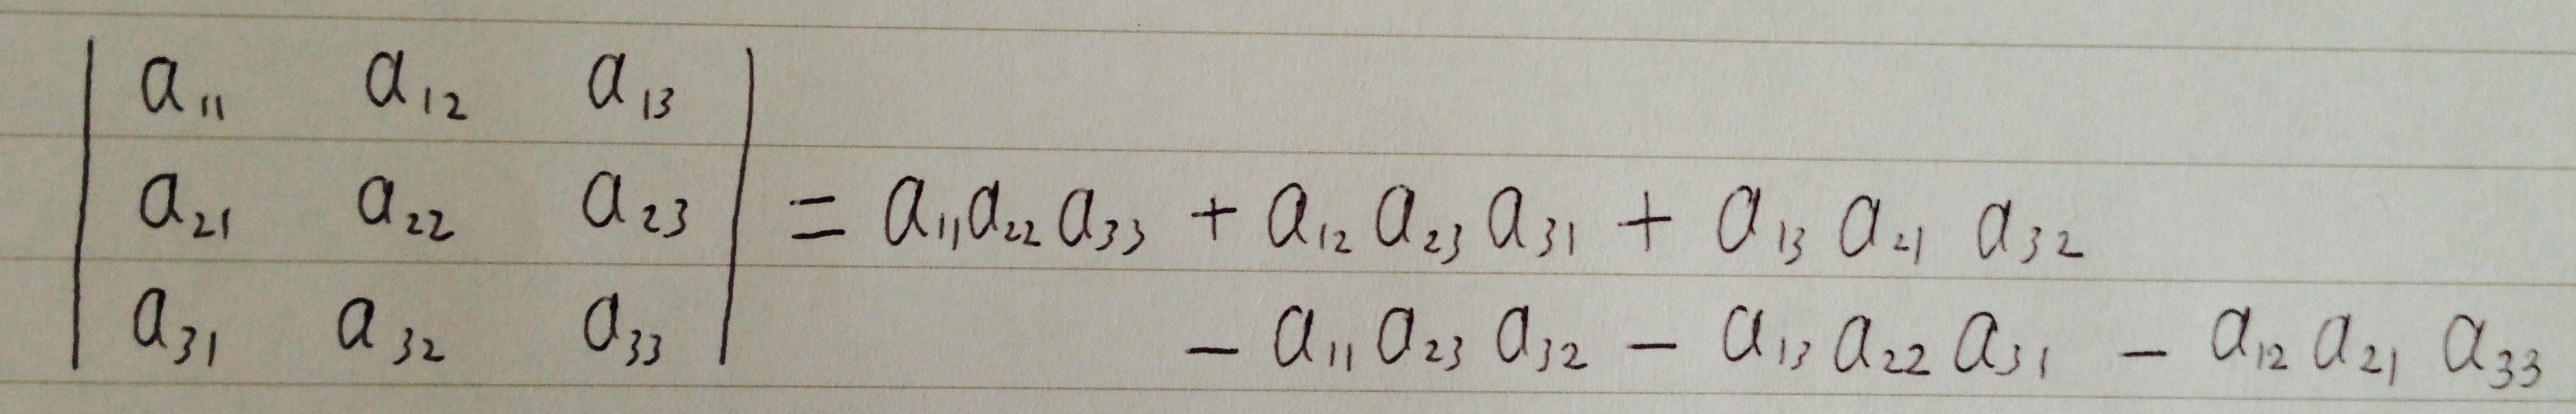 | a₁₁ a₁₂ a₁₃ |
| a₂₁ a₂₂ a₂₃ | = a₁₁a₂₂a₃₃ + a₁₂a₂₃a₃₁ + a₁₃a₂₁a₃₂
| a₃₁ a₃₂ a₃₃ | − a₁₁a₂₃a₃₂ − a₁₃a₂₂a₃₁ − a₁₂a₂₁a₃₃